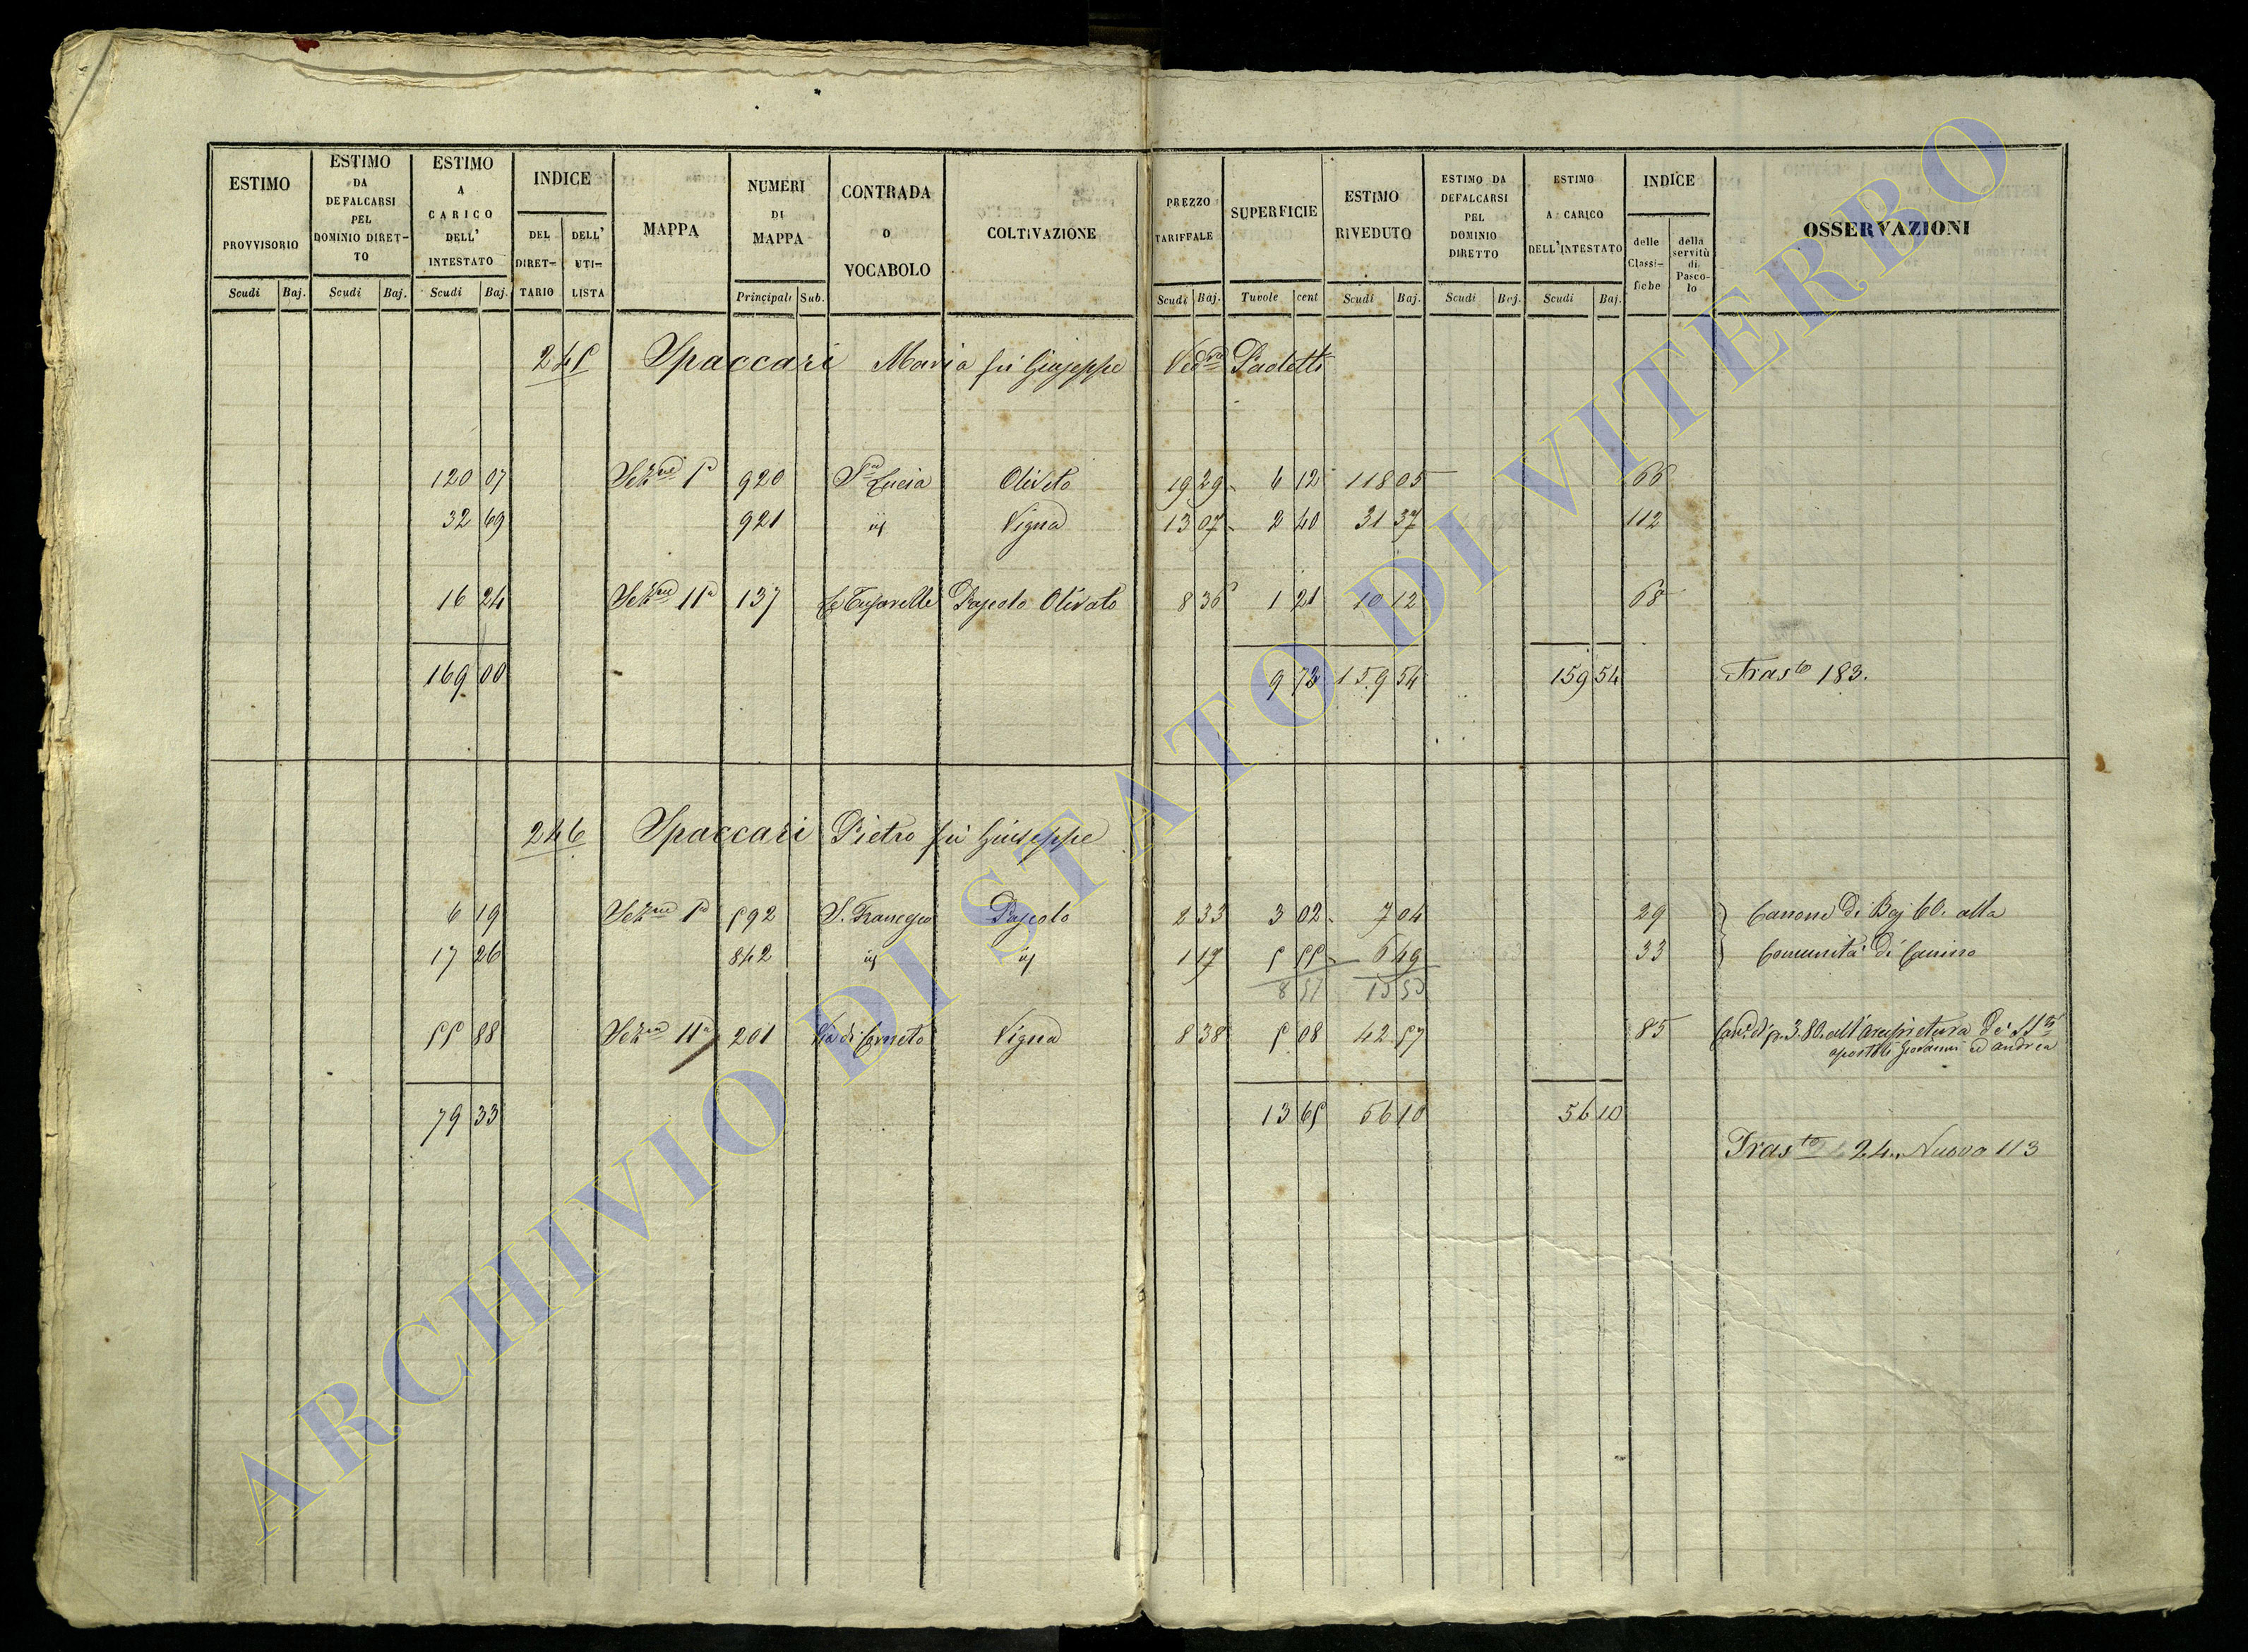 ESTIMO PROVVISORIO Scudi Baj.
ESTIMO DA DEFALCARSI PEL DOMINIO DIRETTO Scudi Baj.
ESTIMO A CARICO DELL' INTESTATO Scudi Baj.
INDICE DEL DIRETTARIO DELL' UTILISTA
MAPPA
NUMERI DI MAPPA Principali Sub.
CONTRADA O VOCABOLO
COLTIVAZIONE
PREZZO TARIFFALE Scudi Baj.
SUPERFICIE Tavole cent
ESTIMO RIVEDUTO Scudi Baj.
ESTIMO DA DEFALCARSI PEL DOMINIO DIRETTO Scudi Baj.
ESTIMO A CARICO DELL'INTESTATO Scudi Baj.
INDICE delle Classifiche della servitù di Pascolo
OSSERVAZIONI
245 Spaccari Maria fu Giuseppe Ved.va Paoletti
120 07 Sez.ne I.a 920 S.ta Lucia Oliveto 19 29 6 12 118 05 66
32 69 921 iij Vigna 13 07 2 40 31 37 112
16 24 Sez.ne II.a 137 Le Tufarelle Pascolo Olivato 8 36 1 21 10 12 68
169 00 9 73 159 54 159 54 Tras.to 183.
246 Spaccari Pietro fu Giuseppe
6 19 Sez.ne I.a 592 S. Francesco Pascolo 2 33 3 02 7 04 29 Canone di Baj 60. alla
17 26 842 iij iij 1 17 5 55 6 49 33 Comunità di Canino
8 57 13 53
55 88 Sez.ne II.a 201 Via di Corneto Vigna 8 38 5 08 42 57 85 Can.e di p. 3.80. all'arcipretura de' SS.ti
apostoli Giovanni ed Andrea
79 33 13 65 56 10 56 10
Tras.to 24. Nuovo 113
ARCHIVIO DI STATO DI VITERBO